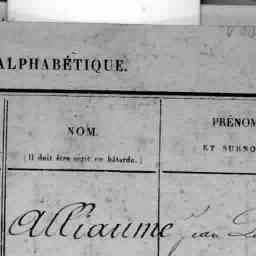 ALPHABÉTIQUE.
NOM.
(Il doit être écrit en bâtarde.)
PRÉNOM
ET SURNO
Alliaume Jean